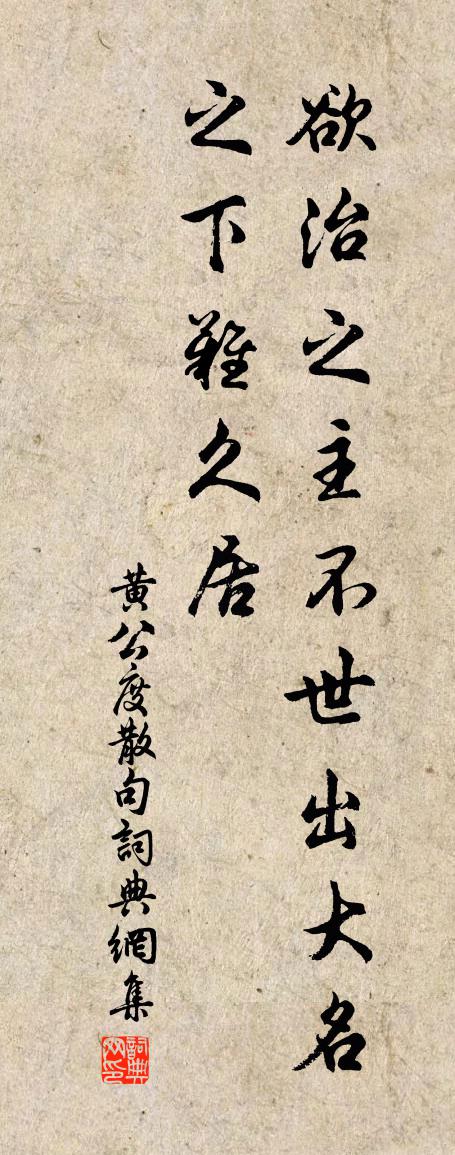 欲治之主不世出大名
之下難久居
黃公度散句詞典網集
詞典网印